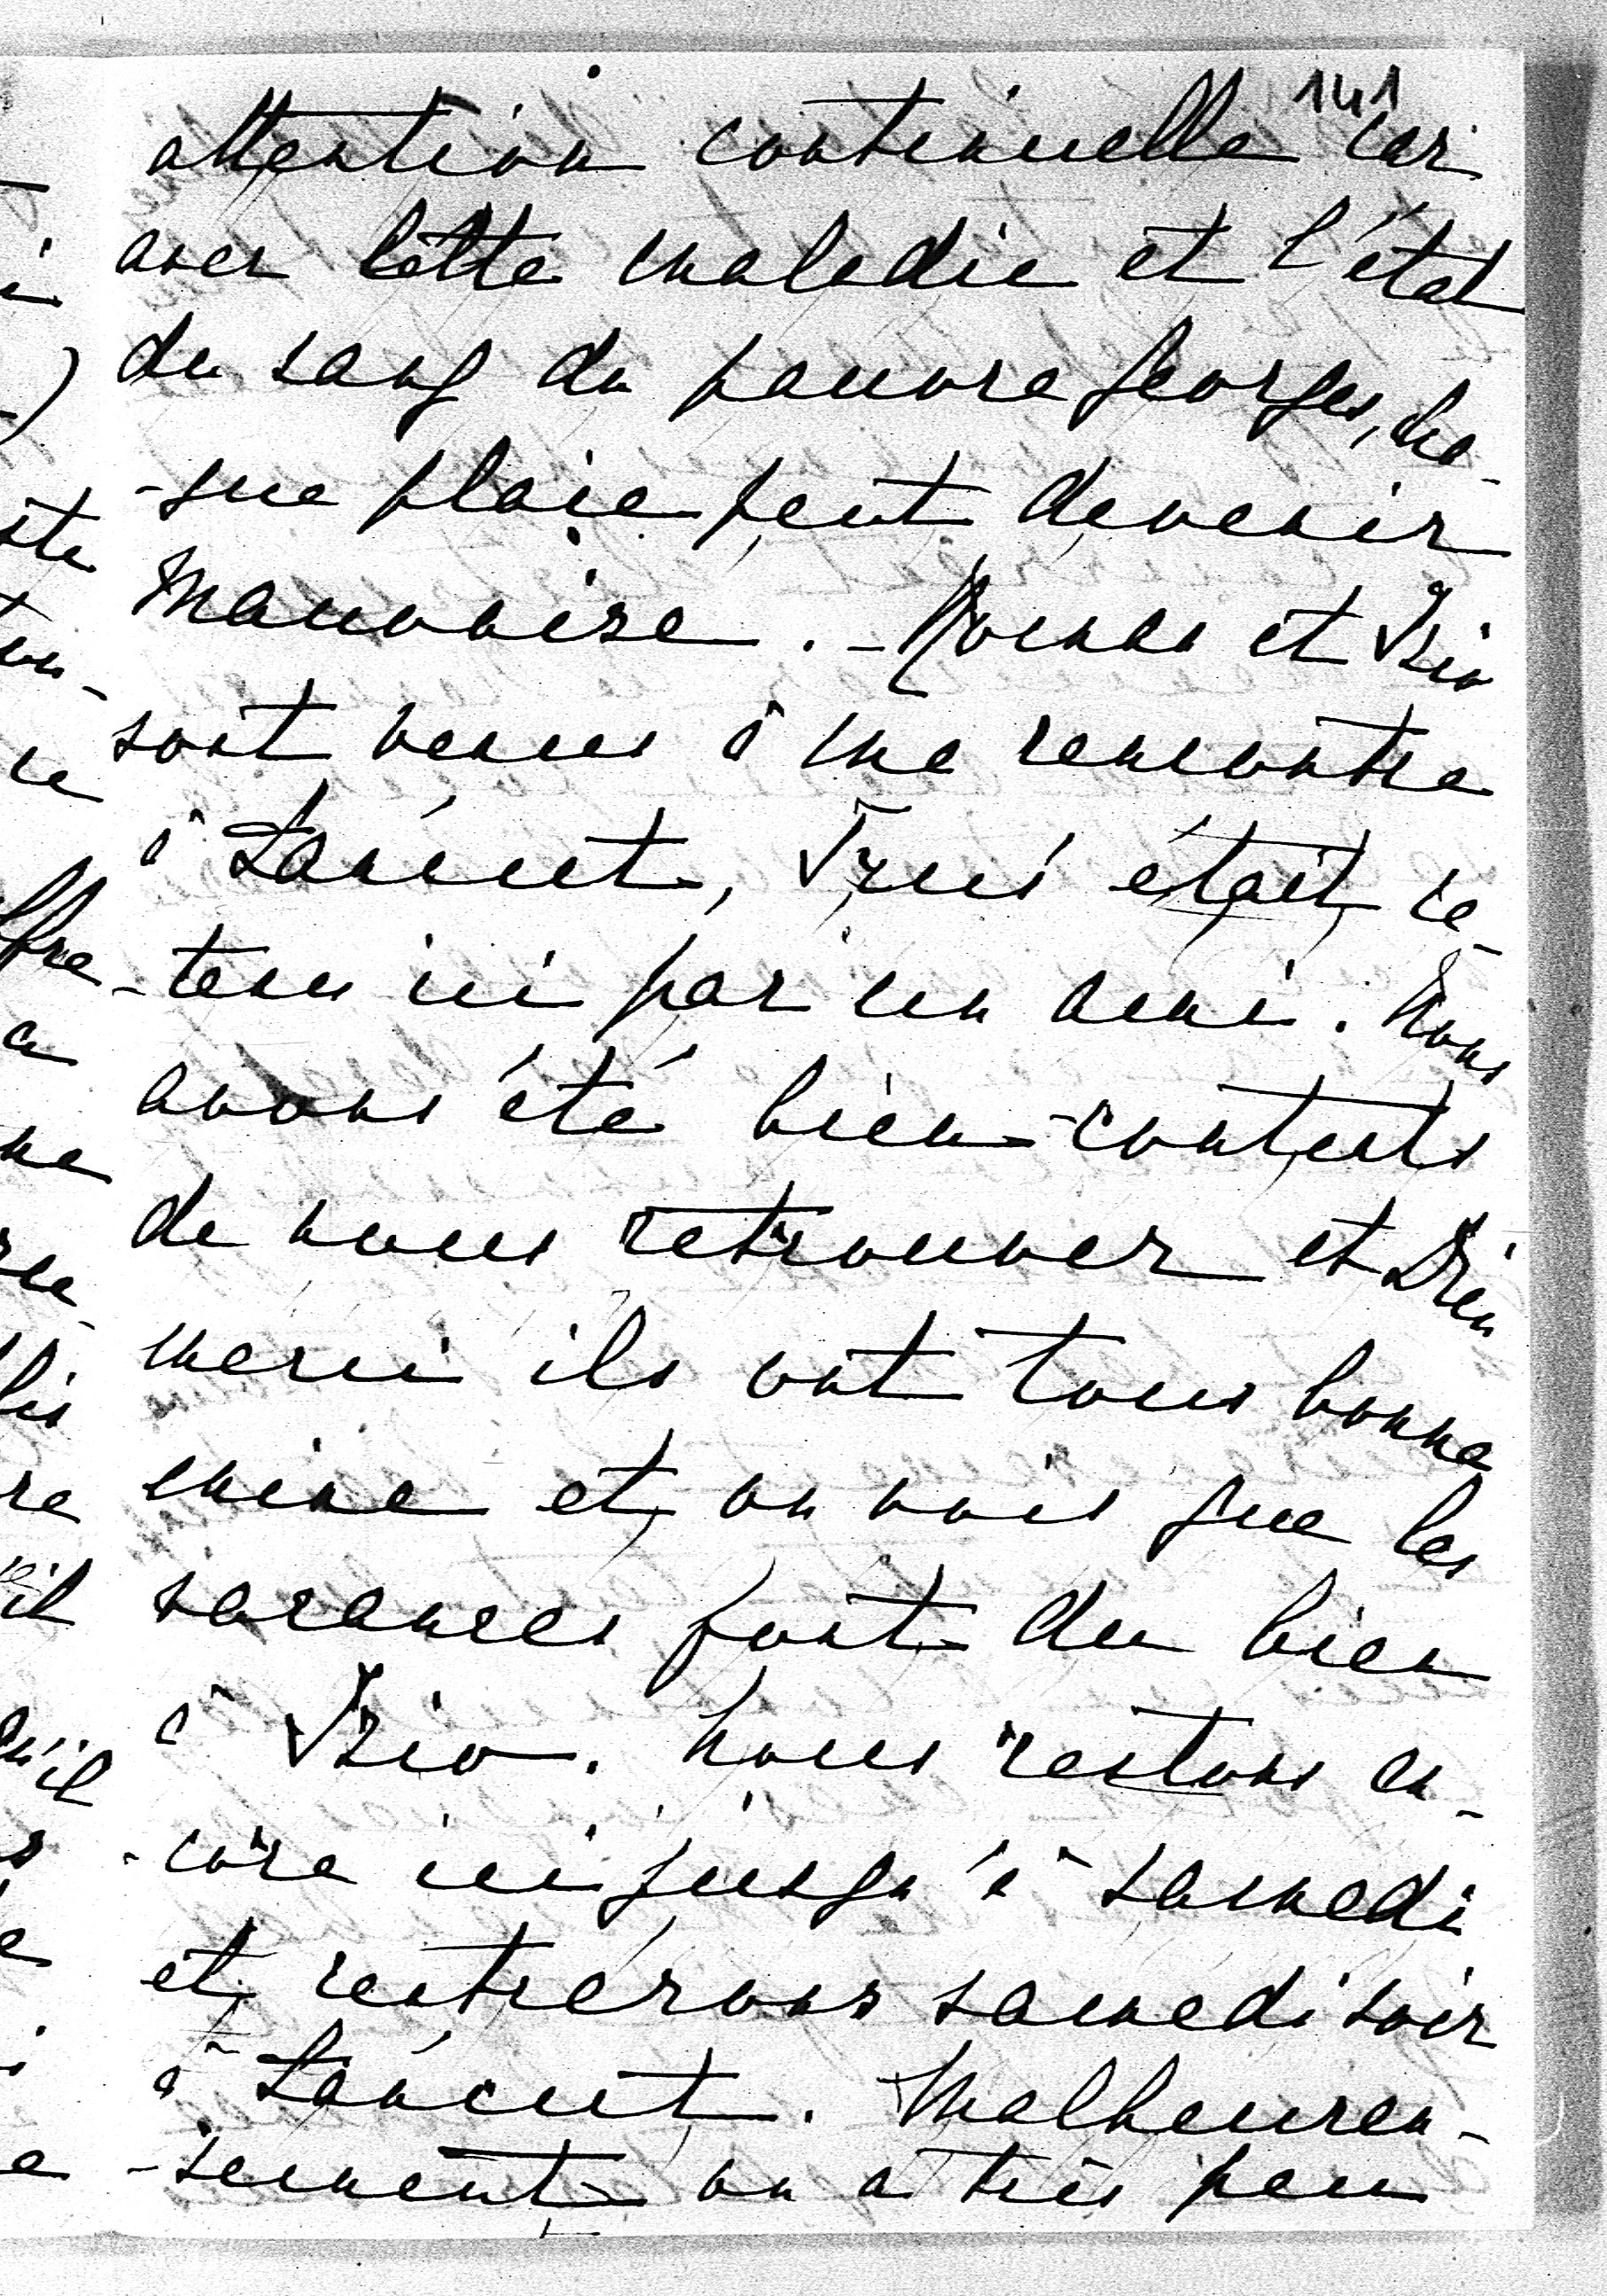 141
attention continuelle car
avec cette maladie et l'état
du sang du pauvre Georges, cha-
-que plaie peut devenir
mauvaise. - et Izio
sont venus à ma rencontre
à Łańcut, était re-
-tenu ici par un ami. Nous
avons été bien contents
de nous retrouver et Dieu
merci ils ont tous bonne
mine et on vois que les
vacances font du bien
à Izio. Nous restons en-
-core ici jusqu'à samedi
et rentrerons samedi soir
à Łańcut. Malheureu-
-sement on a très peu